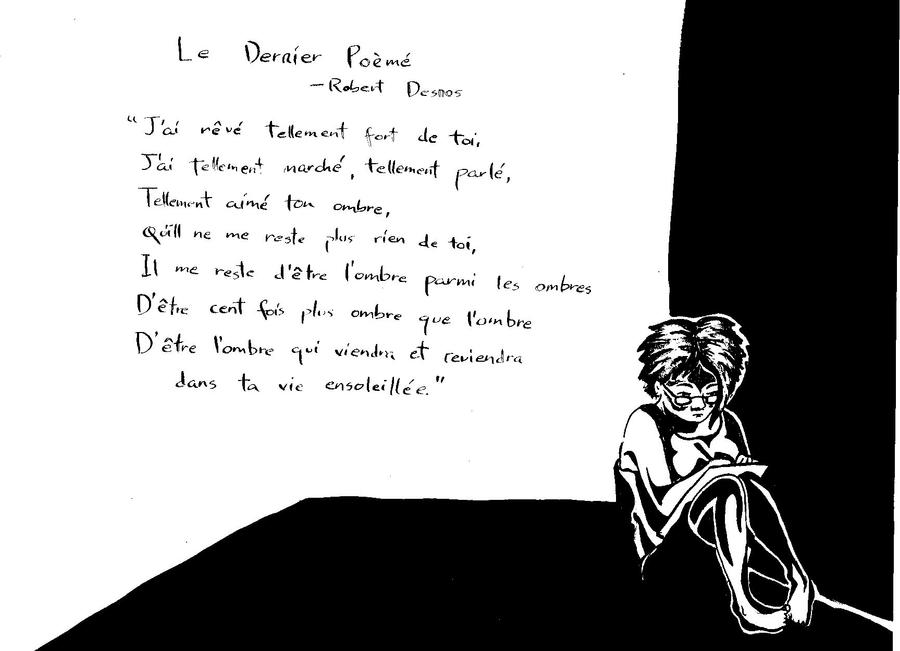 Le Dernier Poèmé
—Robert Desnos
“J'ai rêvé tellement fort de toi,
J'ai tellement marché, tellement parlé,
Tellement aimé ton ombre,
Qu'il ne me reste plus rien de toi,
Il me reste d'être l'ombre parmi les ombres
D'être cent fois plus ombre que l'ombre
D'être l'ombre qui viendra et reviendra
dans ta vie ensoleillée.”